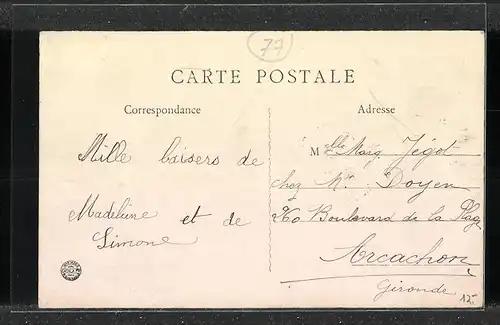 77
CARTE POSTALE
Correspondance
Adresse
Mille baisers de
Madeleine et de
Simone
Melle Marg. Jégot
chez Mr Doyen
Boulevard de la Plag
Arcachon
Gironde
12.-